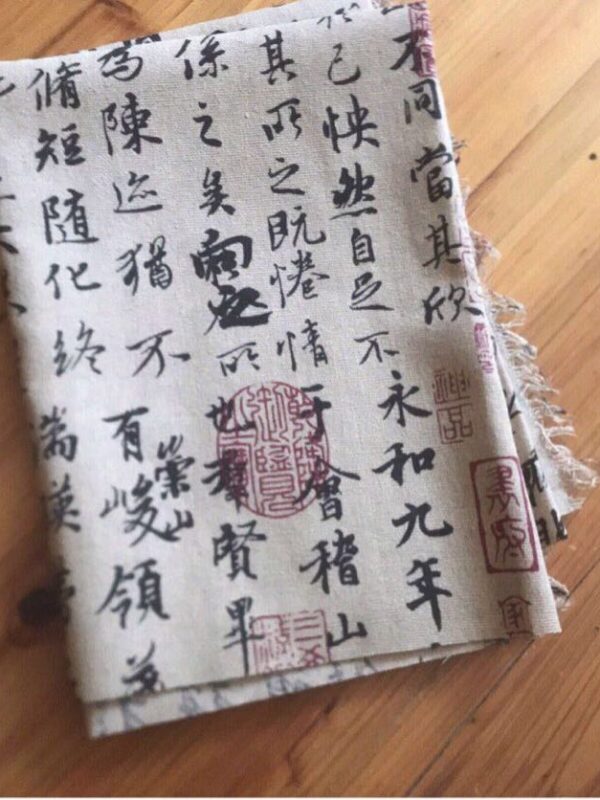 不同當其欣
己怏然自足不
其所之既惓情
係之矣向之所
為陳迹猶不
脩短隨化終
永和九年
于會稽山
也群賢畢
有崇山峻領茂
湍暎